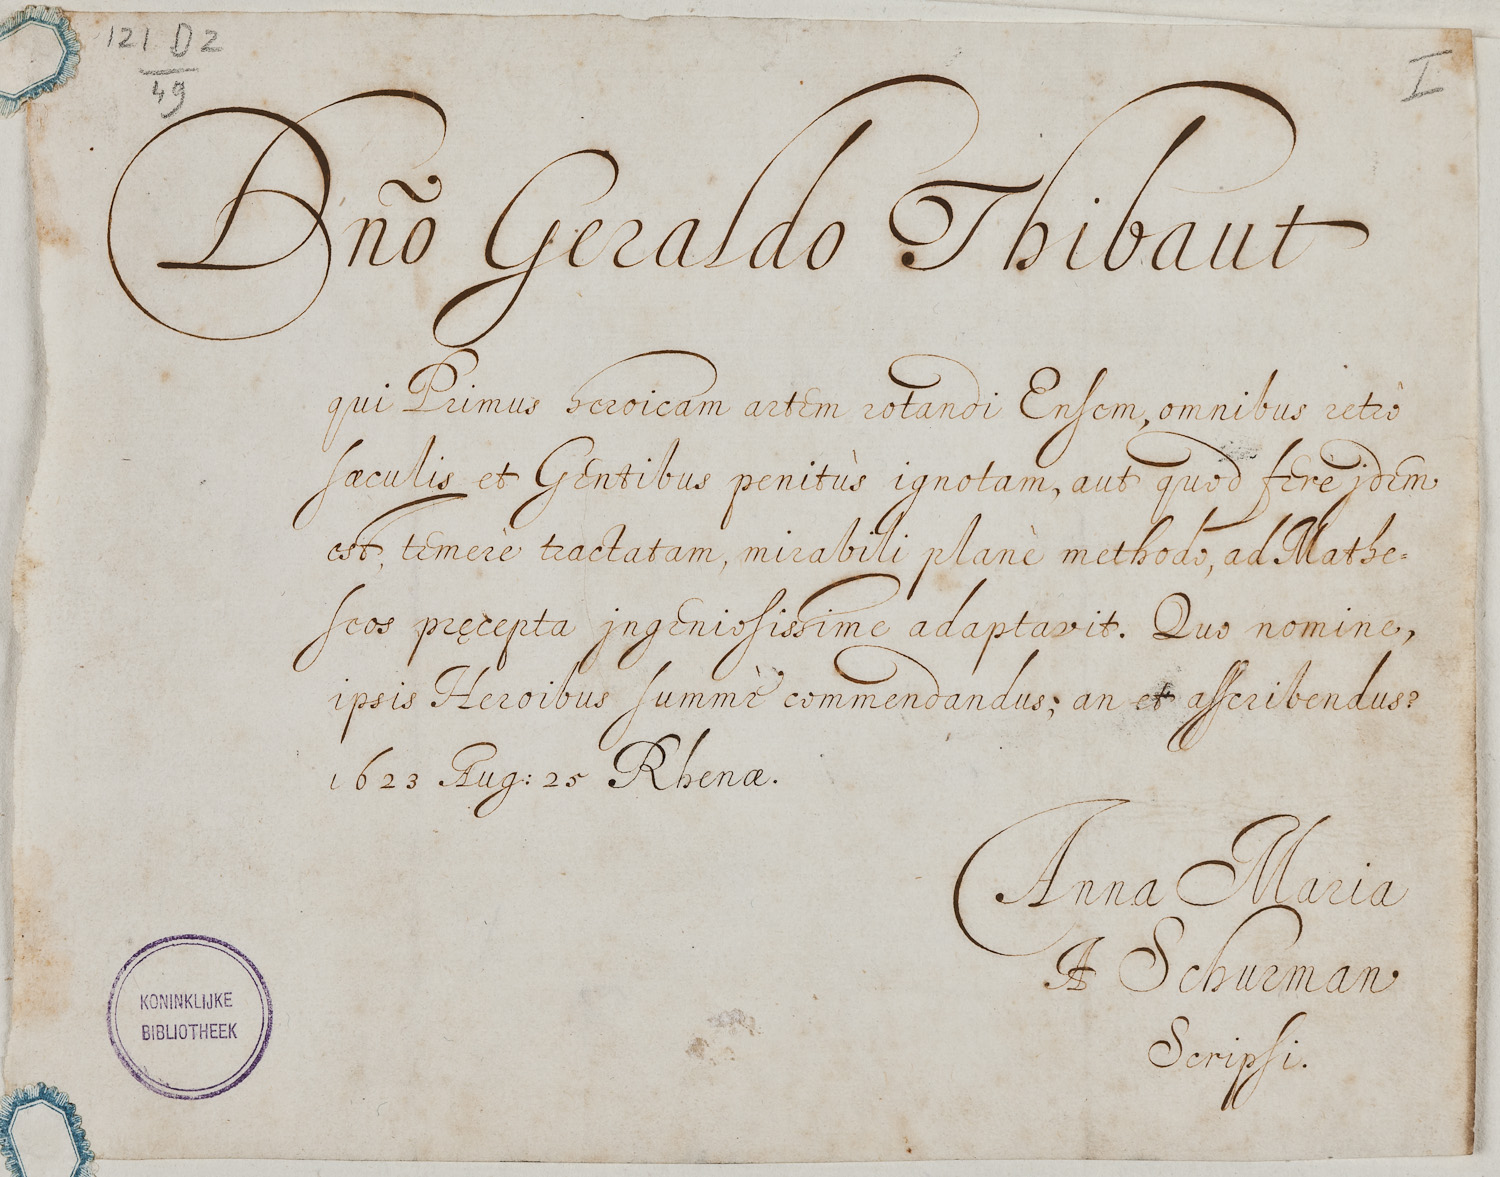 121 D 2
49
I
Dño Geraldo Thibaut
qui Primus heroicam artem rotandi Ensem, omnibus retrò
sæculis et Gentibus penitùs ignotam, aut quod ferè jdem
est, temerè tractatam, mirabili planè methodo, ad Mathe-
seos pręcepta jngeniosissime adaptavit. Quo nomine,
ipsis Heroibus summè commendandus; an et asscribendus?
1623 Aug: 25 Rhenæ.
Anna Maria
A Schurman
Scripsi.
KONINKLIJKE
BIBLIOTHEEK